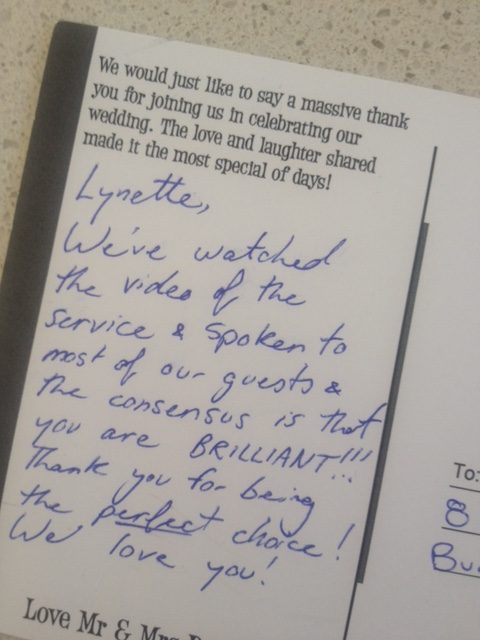 We would just like to say a massive thank
you for joining us in celebrating our
wedding. The love and laughter shared
made it the most special of days!
Lynette,
We've watched
the video of the
service & spoken to
most of our guests &
the consensus is that
you are BRILLIANT!!!
Thank you for being
the perfect choice!
We love you!
Love Mr & Mrs
To:
8